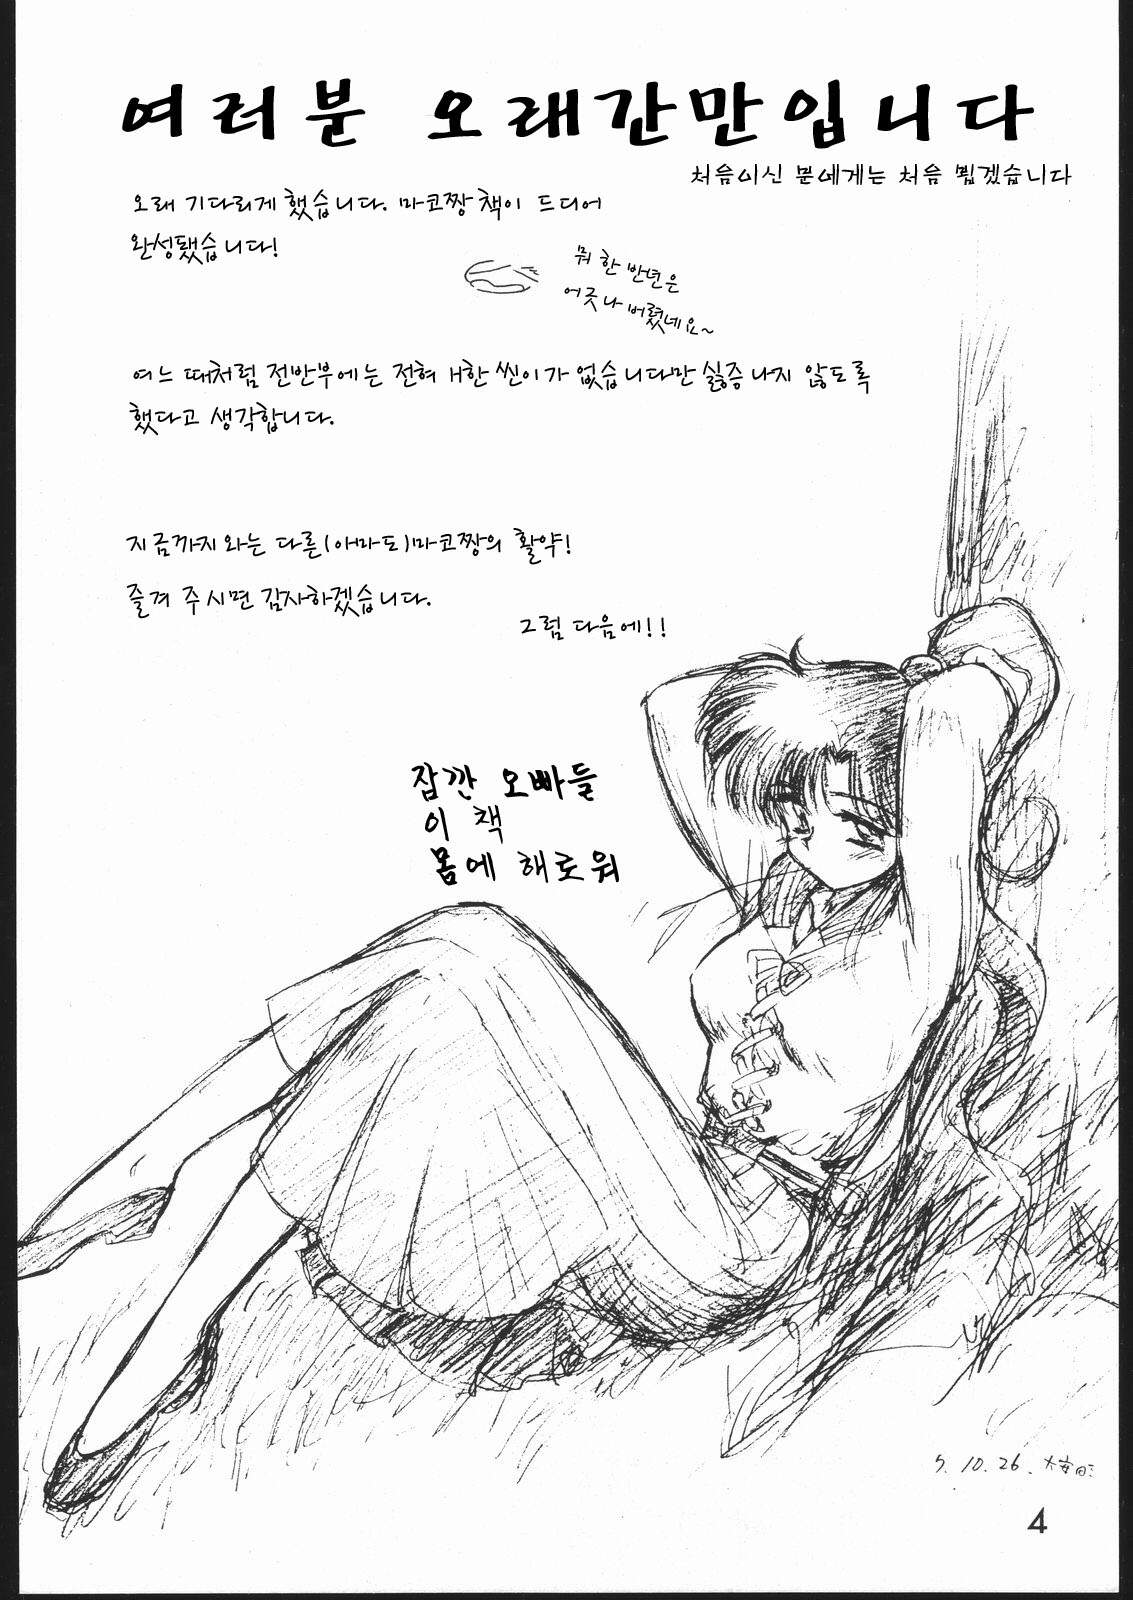 여러분 오래간만입니다
처음이신 분에게는 처음 뵙겠습니다
오래 기다리게 했습니다. 마코짱 책이 드디어
완성됐습니다!
뭐 한 반년은
어긋나 버렸네요~
여느 때처럼 전반부에는 전혀 H한 씬이가 없습니다만 싫증 나지 않도록
했다고 생각합니다.
지금까지와는 다른(아마도)마코짱의 활약!
즐겨 주시면 감사하겠습니다.
그럼 다음에!!
잠깐 오빠들
이 책
몸에 해로워
5. 10. 26.
4